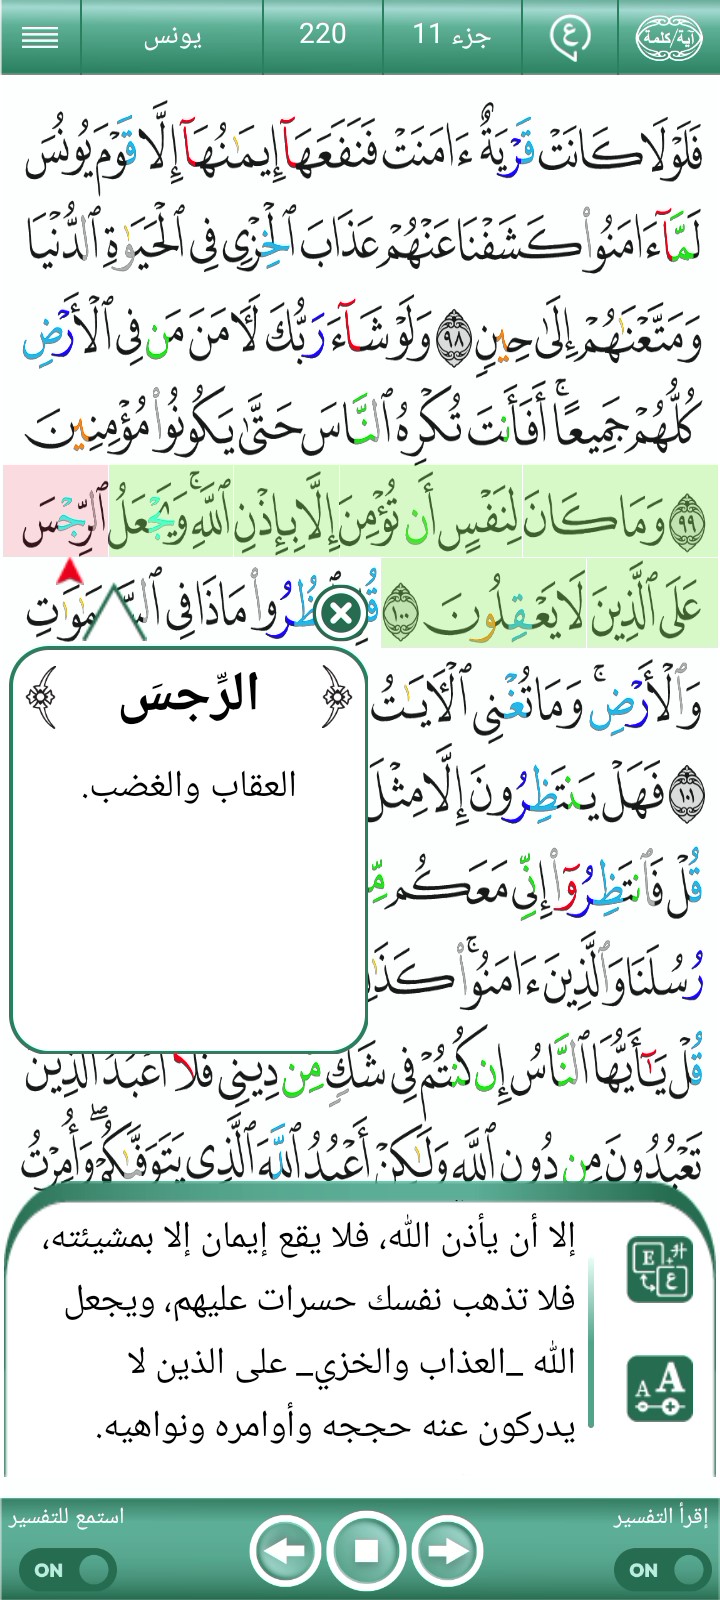 آية/كلمة
ع
جزء 11
220
يونس
فَلَوْلَا كَانَتْ قَرْيَةٌ ءَامَنَتْ فَنَفَعَهَآ إِيمَـٰنُهَآ إِلَّا قَوْمَ يُونُسَ
لَمَّآ ءَامَنُوا۟ كَشَفْنَا عَنْهُمْ عَذَابَ ٱلْخِزْىِ فِى ٱلْحَيَوٰةِ ٱلدُّنْيَا
وَمَتَّعْنَـٰهُمْ إِلَىٰ حِينٍ ٩٨ وَلَوْ شَآءَ رَبُّكَ لَـَٔامَنَ مَن فِى ٱلْأَرْضِ
كُلُّهُمْ جَمِيعًا ۚ أَفَأَنتَ تُكْرِهُ ٱلنَّاسَ حَتَّىٰ يَكُونُوا۟ مُؤْمِنِينَ
٩٩ وَمَا كَانَ لِنَفْسٍ أَن تُؤْمِنَ إِلَّا بِإِذْنِ ٱللَّهِ ۚ وَيَجْعَلُ ٱلرِّجْسَ
عَلَى ٱلَّذِينَ لَا يَعْقِلُونَ ١٠٠ مَاذَا فِى
وَٱلْأَرْضِ ۚ وَمَا تُغْنِى ٱلْـَٔايَـٰتُ
١٠١ فَهَلْ يَنتَظِرُونَ إِلَّا مِثْلَ
قُلْ فَٱنتَظِرُوٓا۟ إِنِّى مَعَكُم
رُسُلَنَا وَٱلَّذِينَ ءَامَنُوا۟ ۚ
الرِّجسَ
العقاب والغضب.
قُلْ يَـٰٓأَيُّهَا ٱلنَّاسُ إِن كُنتُمْ فِى شَكٍّ مِّن دِينِى فَلَآ أَعْبُدُ ٱلَّذِينَ
تَعْبُدُونَ مِن دُونِ ٱللَّهِ وَلَـٰكِنْ أَعْبُدُ ٱللَّهَ ٱلَّذِى يَتَوَفَّىٰكُمْ ۖ وَأُمِرْتُ
إلا أن يأذن الله، فلا يقع إيمان إلا بمشيئته،
فلا تذهب نفسك حسرات عليهم، ويجعل
الله _العذاب والخزي_ على الذين لا
يدركون عنه حججه وأوامره ونواهيه.
E
ع
A A
إقرأ التفسير
ON
استمع للتفسير
ON